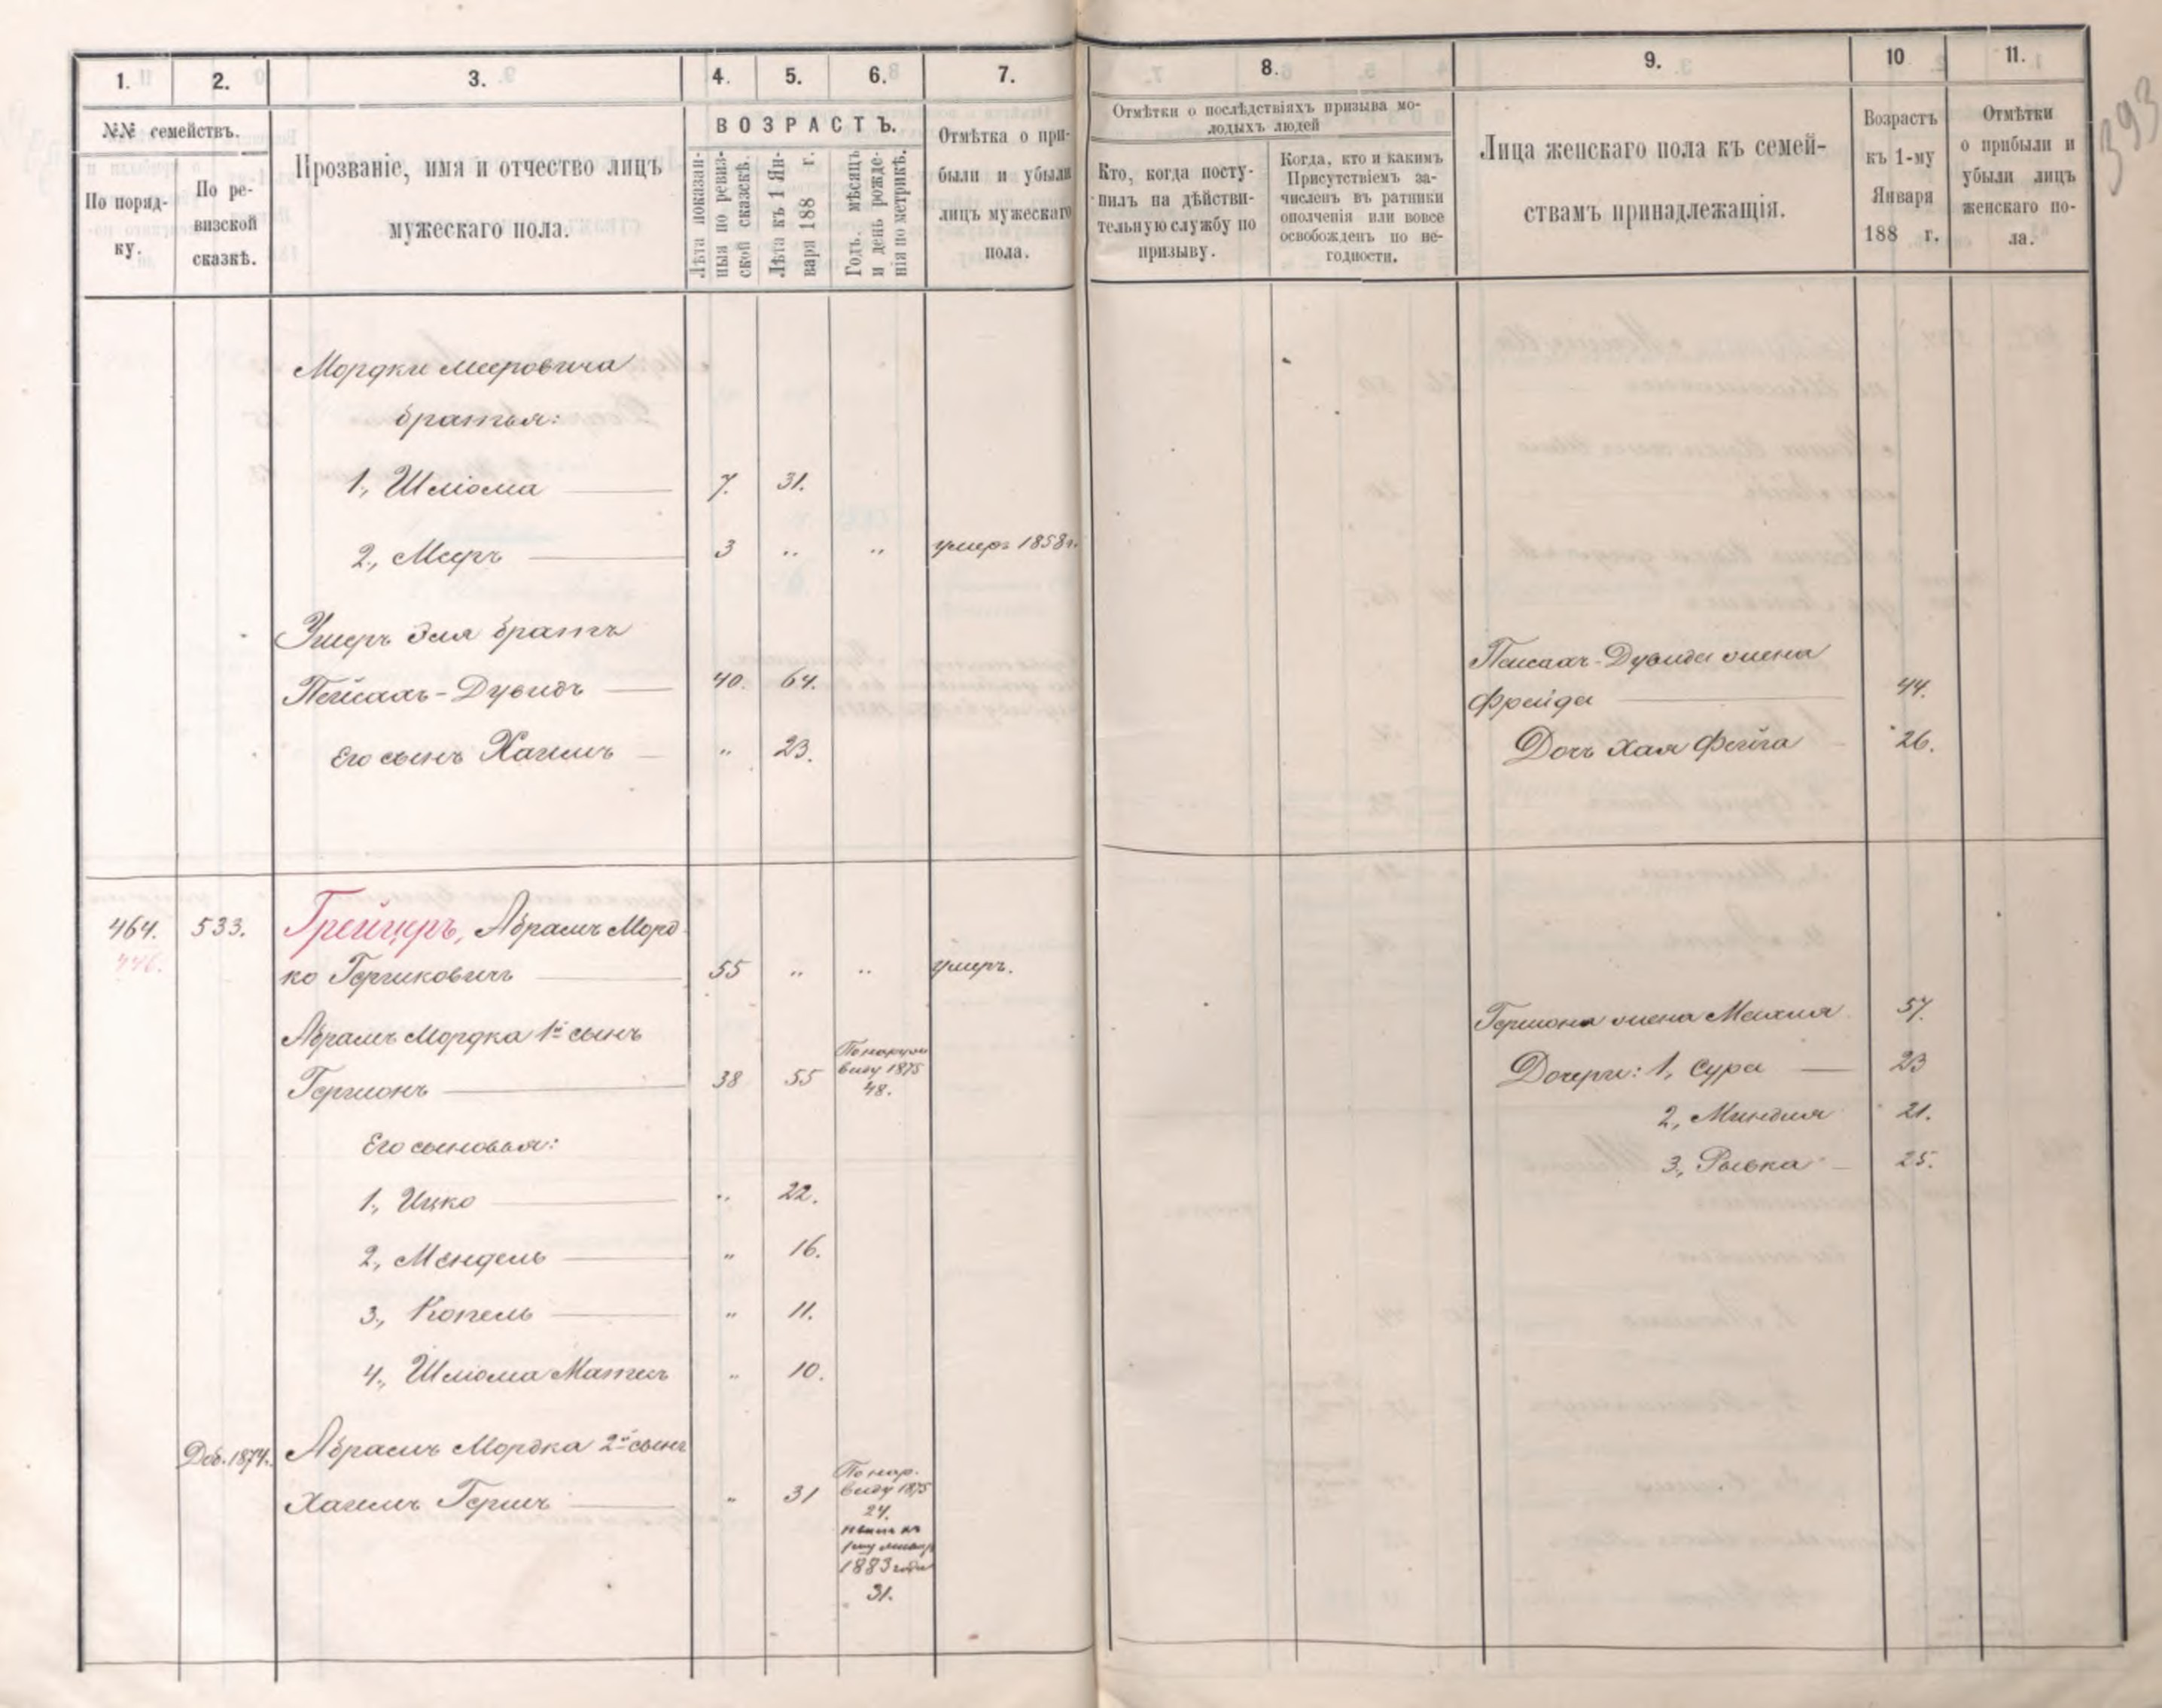 1. 2. 3. 4. 5. 6. 7. 8. 9. 10 11.
№№ семействъ.
По поряд-
ку.
По ре-
визской
сказкѣ.
Прозваніе, имя и отчество лицъ
мужескаго пола.
ВОЗРАСТЪ.
Лѣта показан-
ныя по ревиз-
ской сказкѣ.
Лѣта къ 1 Ян-
варя 188 г.
Годъ, мѣсяцъ
и день рожде-
нія по метрикѣ.
Отмѣтка о при-
были и убыли
лицъ мужескаго
пола.
Отмѣтки о послѣдствіяхъ призыва мо-
лодыхъ людей
Кто, когда посту-
пилъ на дѣйстви-
тельную службу по
призыву.
Когда, кто и какимъ
Присутствіемъ за-
численъ въ ратники
ополченія или вовсе
освобожденъ по не-
годности.
Лица женскаго пола къ семей-
ствамъ принадлежащія.
Возрастъ
къ 1-му
Января
188 г.
Отмѣтки
о прибыли и
убыли лицъ
женскаго по-
ла.
393
Мордки Мееровича
братья:
1., Шліома 7. 31.
2., Мееръ 3 „ „ умеръ 1858 г.
братъ
Пейсахъ-Дувидъ 40. 64.
Его сынъ Хаимъ „ 23.
Пейсахъ-Дувида жена
Фрейда 44.
Дочь Хая Фейга 26.
464. 533. Грейцеръ, Абрамъ Морд
446.
ко Гершковичъ 55 „ „ умеръ.
Абрамъ Мордка 1й сынъ
Гершонъ 38 55
По наруж
виду 1875
48.
Его сыновья:
1., Ицко „ 22.
2., Мендель „ 16.
3., Копель „ 11.
4., Шліома Матисъ „ 10.
Доб. 1874. Абрамъ Мордка 2й сынъ
Хаимъ Гершъ „ 31
По нар.
виду 1875
24.
1883 года
31.
Гершона жена Махля 57.
Дочери: 1, Сура 23
2, Миндля 21.
3., Рывка 25.